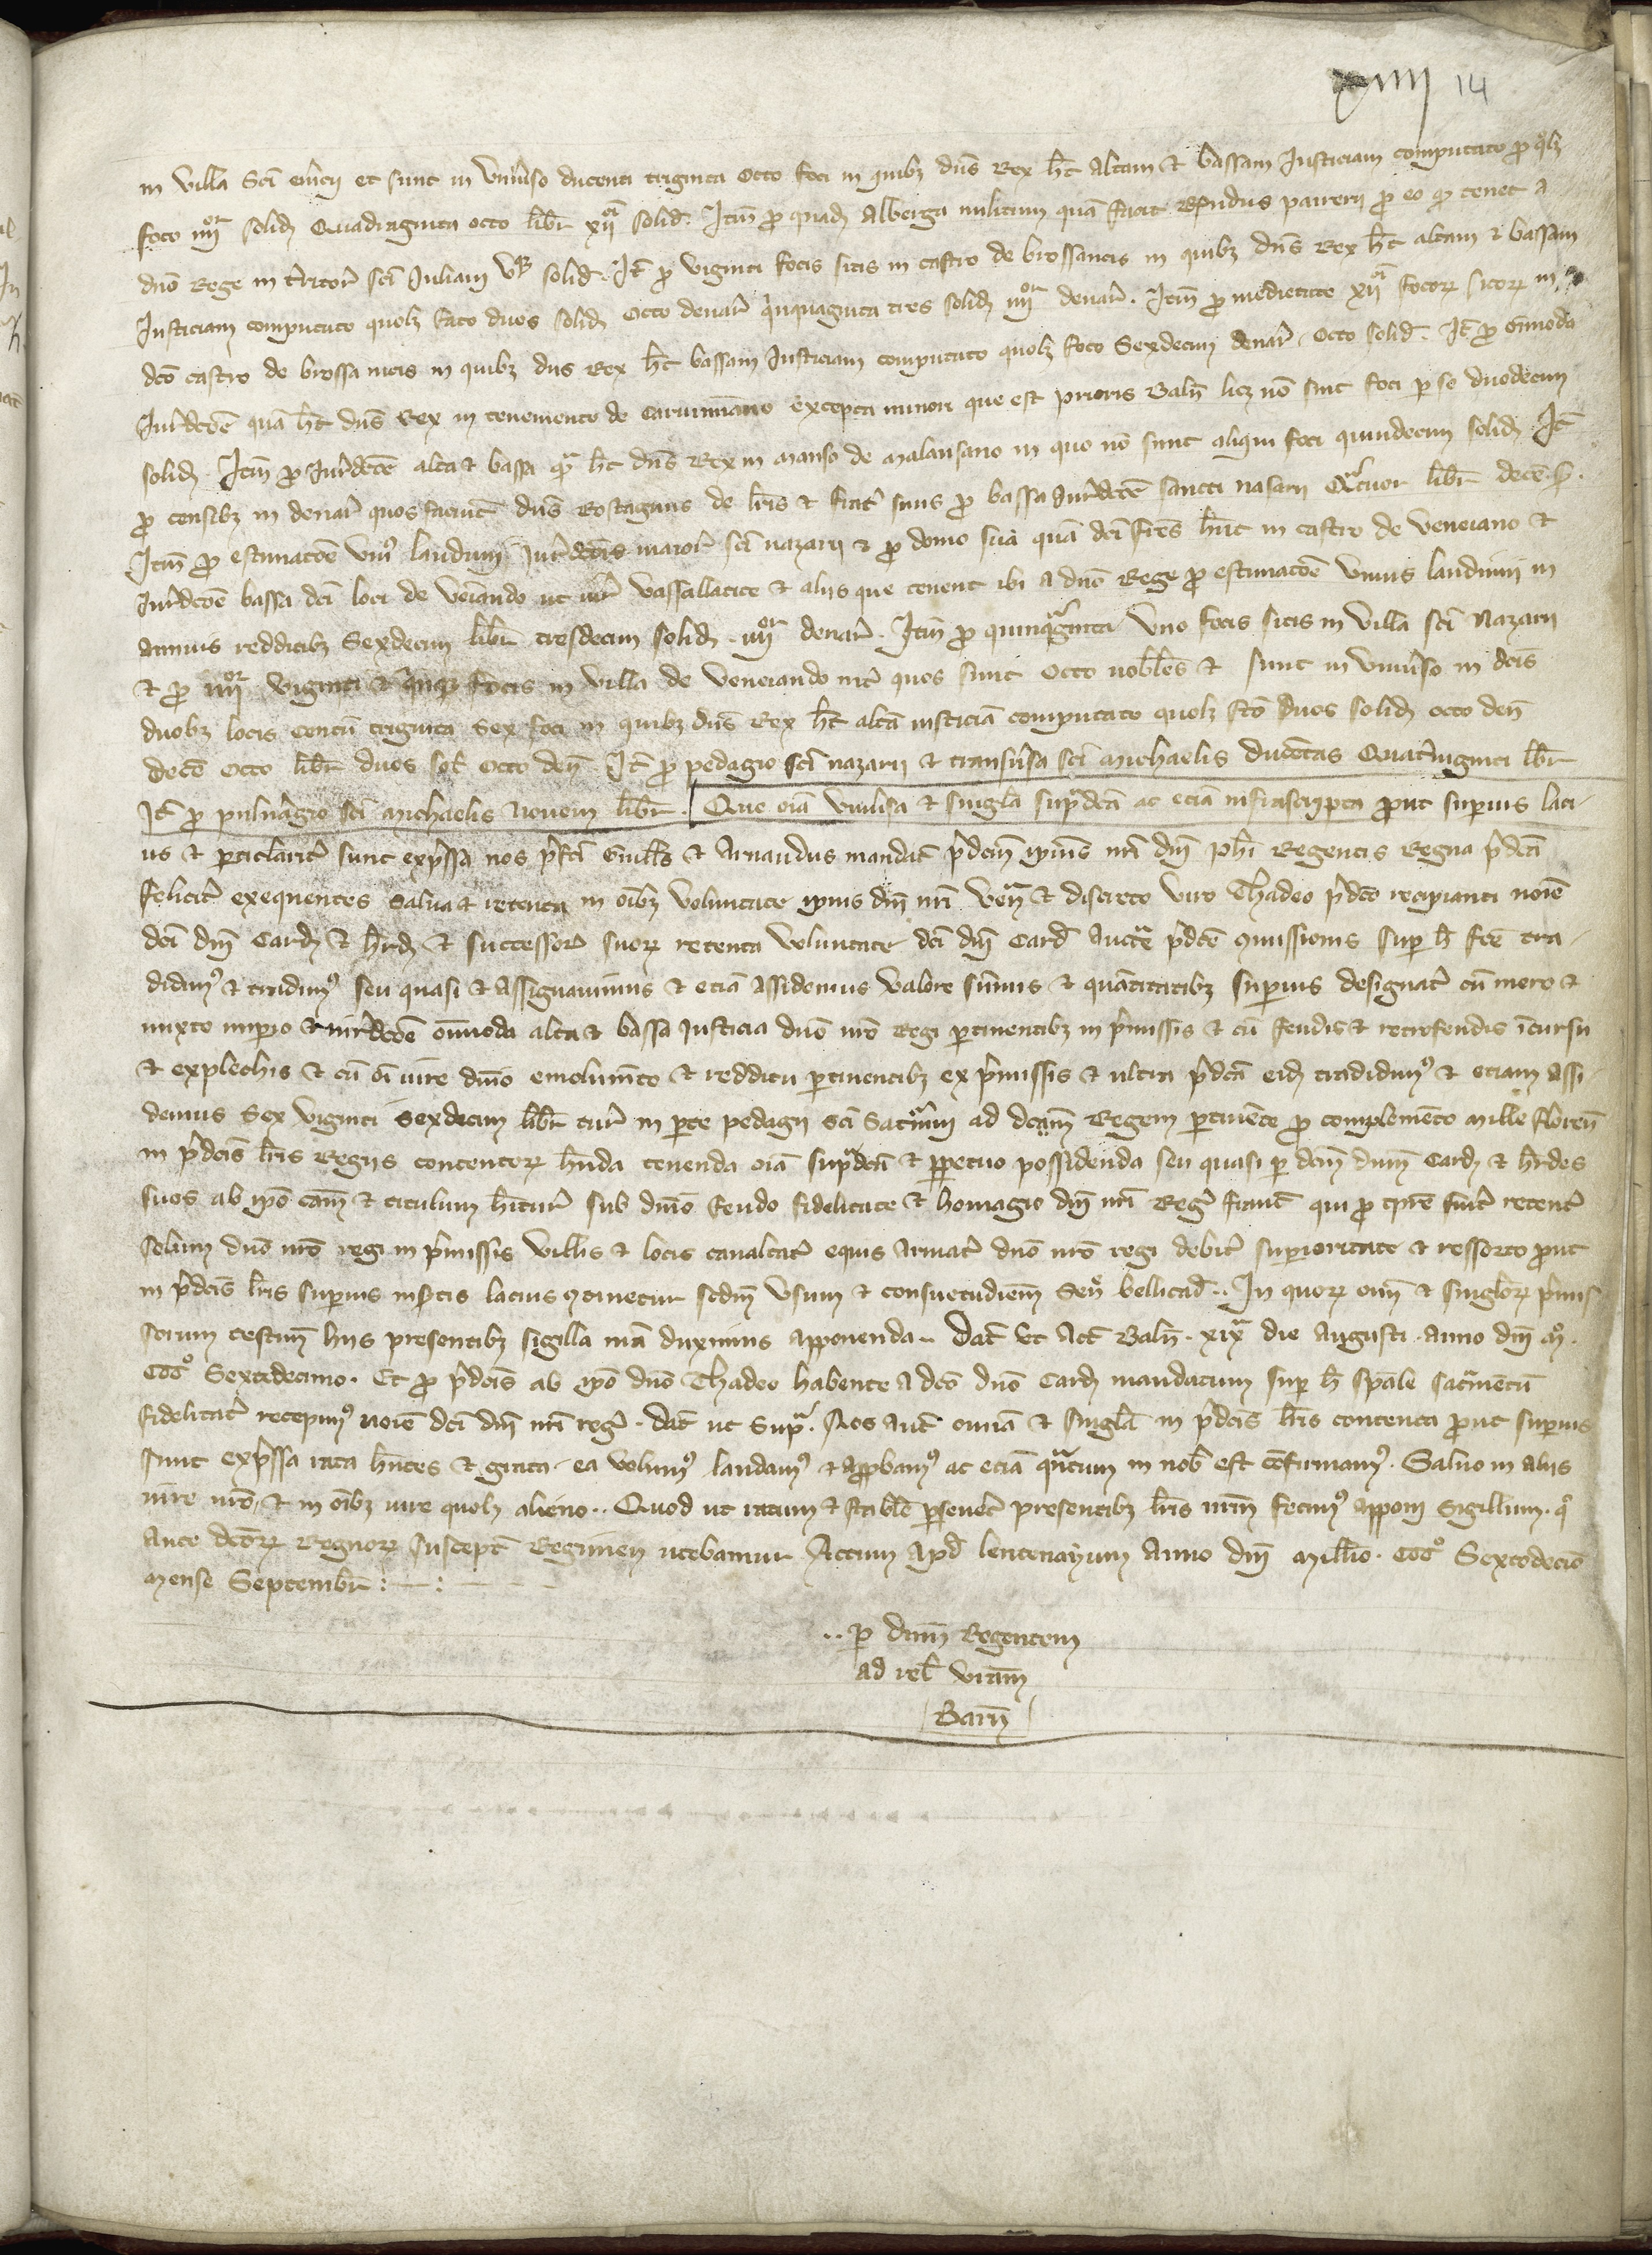 xiiii 14
in villa Sci emerii et sunt in univso ducenti triginta octo foci in quibz dns Rex ht altam et bassam Justiciam computato p qolz
foco iiiior solidz Quadraginta octo libr xiia solid. Itm p quadz Alberga militum quā facit Rpndus p eo qd tenet a
dno Rege in tritor sci Juliani vqz solid. It p viginti focis sitis in castro de brossancis in quibz dns Rex ht altam et bassam
Justiciam computato quolz foco duos solidz octo denar quinquaginta tres solidz iiiior denar. Itm p medietate xiia focorz sitorz in
dco castro de brossa ncis in quibz dns Rex ht bassam Justiciam computato quolz foco Sexdecim denar. octo solid. It p oimoda
Jurdcoe quā ht dns Rex in tenemento de excepta minori que est prioris Baln licz no sint foci per se duodecim
solidz. Itm p Jurdcoe alta et bassa qa ht dns Rex in manso de malansano in quo no sunt aliqui foci quindecim solidz. It
p censibz in denar quos faciut dns Rostagnus de lris et frat suus p bassa Jurdcoe sancti nasarii Qatuor libr dece s.
Itm p estimacoe uni laudimii Jurdcois maior sci nazarii et p domo sua quā dci fres hnt in castro de veneiano et
Jurdcoe bassa dci loci de veiando ut vassallatice et aliis que tenent ibi a dno Rege p estimacoe unius laudimii in
annuis redditibz Sexdecim libr tresdecim solidz. iiiior denar. Itm p quinqaginta uno focis sitis in villa sci Nazarii
et p iiiior viginti et qinqz focis in villa de veneiando int quos sunt octo nobiles et sunt in univso in dcis
duobz locis centu triginta sex foci in quibz dns Rex ht altā iusticiā computato quolz fco duos solidz octo den
dece octo libr duos sol octo den. It p pedagio sci nazarii et transvsa sci michaelis ducetas Quatviginti lbr
It p pulvagio sci michaelis novem libr. Que oia univsa et singla supadca ac eciā infrascripta put supius laci-
us et particlarit sunt expssa nos pfati Guills et Arnaudus mandat pdcm ipius nri dni Phi Regentis Regna pdca
felicit exequentes salva et retenta in oibz voluntate ipius dni nri vena et discreto viro Thadeo pdco recipianti noie
dci dni Cardz et hrdz et successor suorz retenta voluntate dci dni Card aucte pdce comissionis sup h fce tra-
didim9 et tradim9 seu quasi et assignavimus et eciā assidemus valore sumis et quātitatibz supius designat cu mero et
mixto impio et iurdcoe omoda alta et bassa iusticia dno nro Regi ptinentibz in pmissis et cu feudis et retrofeudis icursu
et explechis et cu oi iure dnio emolumto et redditu ptinentibz ex pmissis et ultra pdca eidz tradidim9 et etiam assi-
demus sex viginti sexdecim libr tur in pte pedagii sci Satnini ad dcum Regem ptinente p complemeto mille floren
in pdcis lris Regiis contentorz hnda tenenda oia supadca et ppetuo possidenda seu quasi p dcm dnm Cardz et hrdes
suos ab ipo cam et titulum hitur sub dnio feudo fidelitate et homagio dni nri Reg franc qui p tpre fuit retent
solum dno nro regi in pmissis villis et locis cavalcat equis armat dno nro regi debit supioritate et ressorto put
in pdcis lris supius insctis lacius continetur scdm usum et consuetudiem Sen bellicad.. In quorz oim et singlorz pmis-
sorum testim hiis presentibz sigilla nra duximus apponenda.. Dat et act Baln. xixa die Augusti. Anno dni mo.
CCCo Sextodecimo. Et p pdcis ab ipo dno Thadeo habente a dco dno Cardz mandatum sup h spale sacametu
fidelitat recepim9 noie dci dni nri reg. Dat ut supa. Nos aut omia et singla in pdcis lris contenta put supius
sunt expssa rata hntes et grata. ea volum9 laudam9 et appbam9 ac eciā qatum in nob est cofirmam9. Salvo in aliis
iure nro, et in oibz iure quolz alieno.. Quod ut ratum et stabile pseveret presentibz lris nrm fecim9 apponi sigillum. qo
ante dcorz Regnorz suscept Regimen utebamur Actum apd lentenayum Anno dni millio. CCCo Sextodecio
mense Septembr :—:
.. p dnm Regentem
ad rel vram
Barr